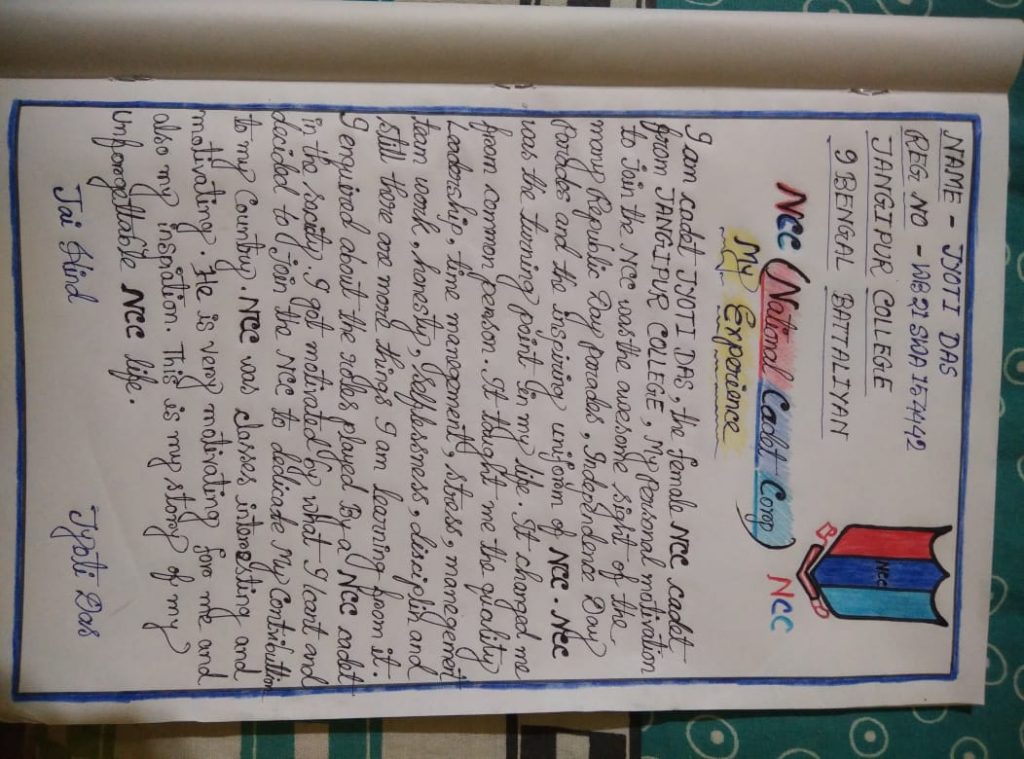 NAME - JYOTI DAS
REG. NO - WB21SWA154142
JANGIPUR COLLEGE
9 BENGAL BATTALIYAN
NCC
NCC
NCC (National Cadet Corp)
My Experience
I am cadet JYOTI DAS, the female NCC cadet
from JANGIPUR COLLEGE, My personal motivation
to join the NCC was the awesome sight of the
many Republic Day parades, Independence Day
Parades and the inspiring uniform of NCC. NCC
was the turning point in my life. It changed me
from common person. It thought me the quality
Leadership, time management, stress, manegement
team work, honesty, selflessness, disciplin and
still there are more things I am learning from it.
I enquired about the roles played By a NCC cadet
in the society. I got motivated by what I lant and
decided to join the NCC to dedicate My Contribution
to my Country. NCC was classes interesting and
motivating. He is very motivating for me and
also my inspiration. This is my story of my
Unforgettable NCC life.
Jai Hind
Jyoti Das